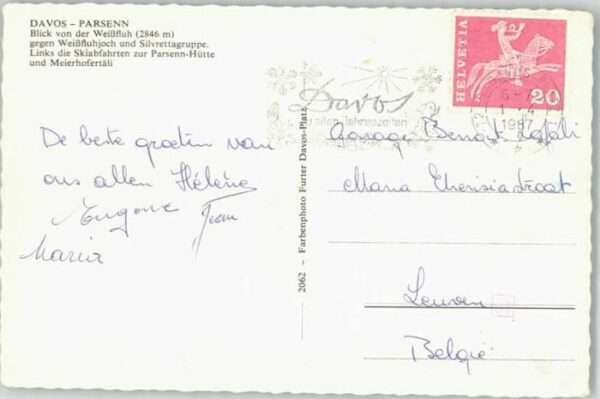 DAVOS – PARSENN
Blick von der Weißfluh (2846 m)
gegen Weißfluhjoch und Silvrettagruppe.
Links die Skiabfahrten zur Parsenn-Hütte
und Meierhofertäli
HELVETIA
20
Davos
allen Jahreszeiten
1967
De beste groeten van
ons allen Hélène
Eugène Jean
Maria
2062 - Farbenphoto Furter Davos-Platz
Garage Benoit
Maria Theresiastraat
Leuven
België